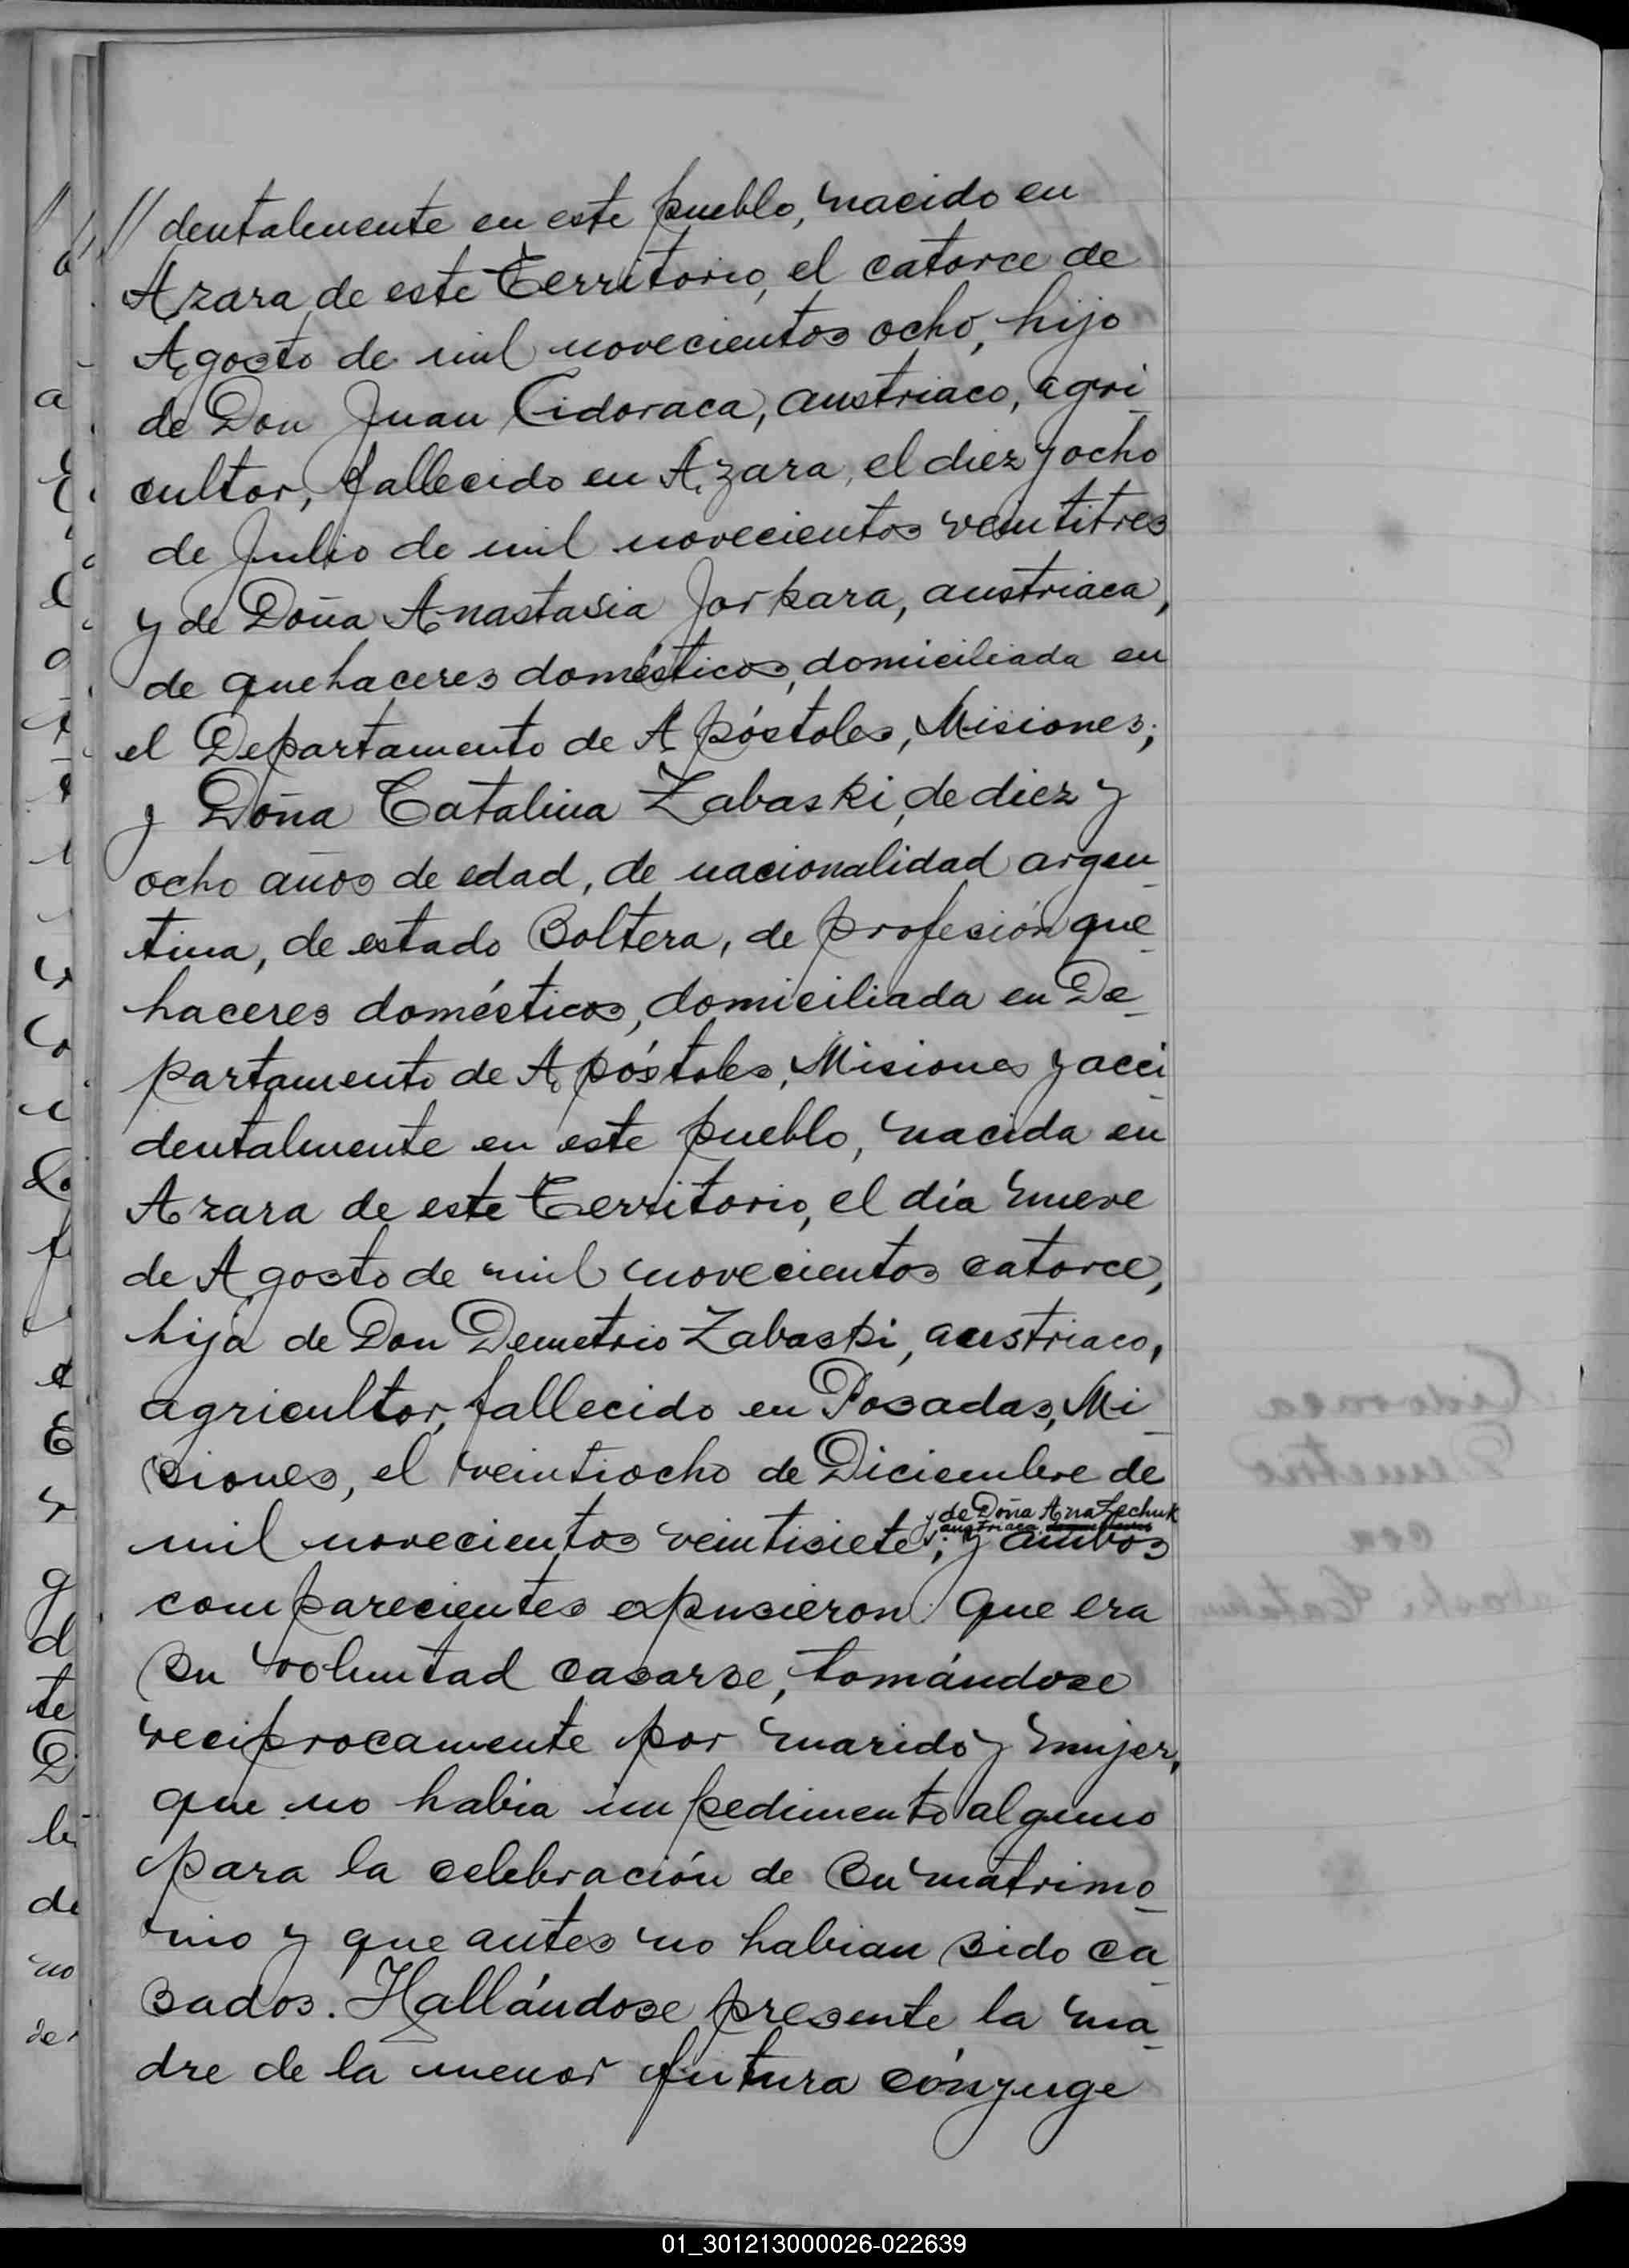 // dentalmente en este pueblo, nacido en
Azara de este Territorio, el catorce de
Agosto de mil novecientos ocho, hijo
de Don Juan Cidoraca, austriaco, agri
cultor, fallecido en Azara, el diez y ocho
de Julio de mil novecientos veintitres
y de Doña Anastasia Jorkara, austriaca,
de quehaceres domésticos, domiciliada en
el Departamento de Apóstoles, Misiones;
y Doña Catalina Zabaski, de diez y
ocho años de edad, de nacionalidad argen
tina, de estado soltera, de profesión que
haceres domésticos, domiciliada en De
partamento de Apóstoles, Misiones y acci
dentalmente en este pueblo, nacida en
Azara de este Territorio, el día nueve
de Agosto de mil novecientos catorce,
hija de Don Demetrio Zabaski, austriaco,
agricultor, fallecido en Posadas, Mi
siones, el veintiocho de Diciembre de
y de Doña Ana Zechuk
austriaca
mil novecientos veintisiete; y ambos
comparecientes expusieron: Que era
su voluntad casarse, tomándose
reciprocamente por marido y mujer,
que no habia impedimento alguno
para la celebración de su matrimo
nio y que antes no habian sido ca
sados. Hallándose presente la ma
dre de la menor futura cónyuge
01_301213000026-022639